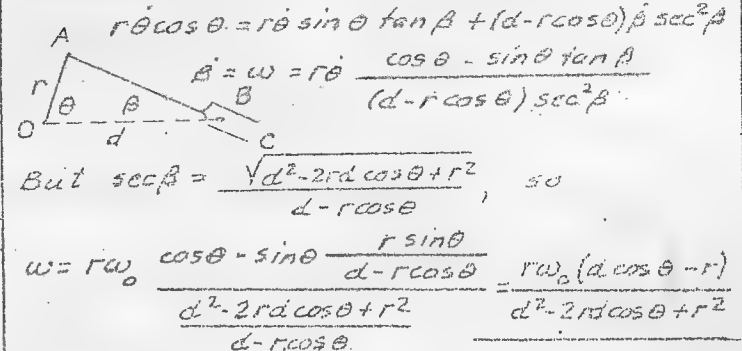 rθ̇ cos θ = rθ̇ sin θ tan β + (d-r cos θ) β̇ sec²β
A
β̇ = ω = rθ̇ (cos θ - sin θ tan β) / ((d-r cos θ) sec²β)
r
θ β B
O d C
But sec β = √(d²-2rd cos θ+r²) / (d-r cos θ), so
ω = rω₀ (cos θ - sin θ (r sin θ)/(d-r cos θ)) / ((d²-2rd cos θ+r²)/(d-r cos θ)) = rω₀(d cos θ -r) / (d²-2rd cos θ+r²)